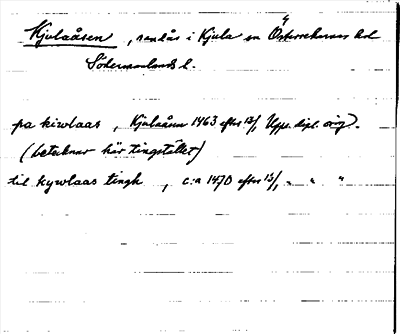 Kjulaåsen, senås i Kjula sn Österrekarne hd
Södermanlands l.
pa kiwlaas, Kjulaåsen 1463 efter 13/1 Upps. dipl. orig.
(betecknar här tingstället)
til kywlaas tingh, c:a 1470 efter 13/1 " " "